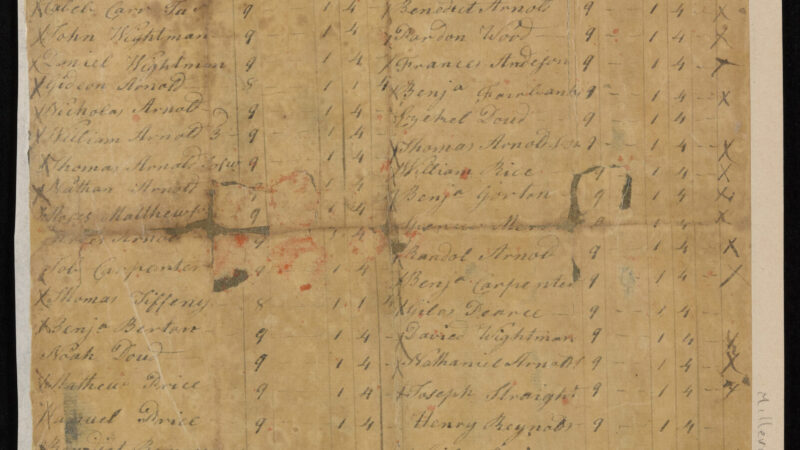 x Caleb Carr 9 1 4
x John Wightman 9 1 4
x Daniel Wightman 9 1 4
x Gideon Arnold 8 1 1 4
x Nicholas Arnold 9 1 4
x William Arnold 3 9 1 4
x Thomas Arnold 9 1 4
x Nathan Arnold 9 1 4
Matthews 9 1 4
Arnold 9 1 4
Job Carpenter 9 1 4
x Thomas Tiffeny 8 1 1 4
x Benja Berton 9 1 4
Noah Doud 9 1 4
x Mathew Price 9 1 4
x Samuel Price 9 1 4
Benedict Arnold 9 1 4 x
x Pardon Wood 9 1 4 x
x Frances Andeson 9 1 4 x
x Benja 9 1 4 x
Ezekel Doud 9 1 4
Thomas Arnold 9 1 4 x
William Rice 9 1 4 x
x Benja Gorton 9 1 4 x
9 1 4 x
Randol Arnold 9 1 4 x
x Benja Carpenter 9 1 4 x
x Giles Pearce 9 1 4
x David Wightman 9 1 4 x
x Nathaniel Arnold 9 1 4 x
x Joseph Straight 9 1 4 x
Henry Reynolds 9 1 4